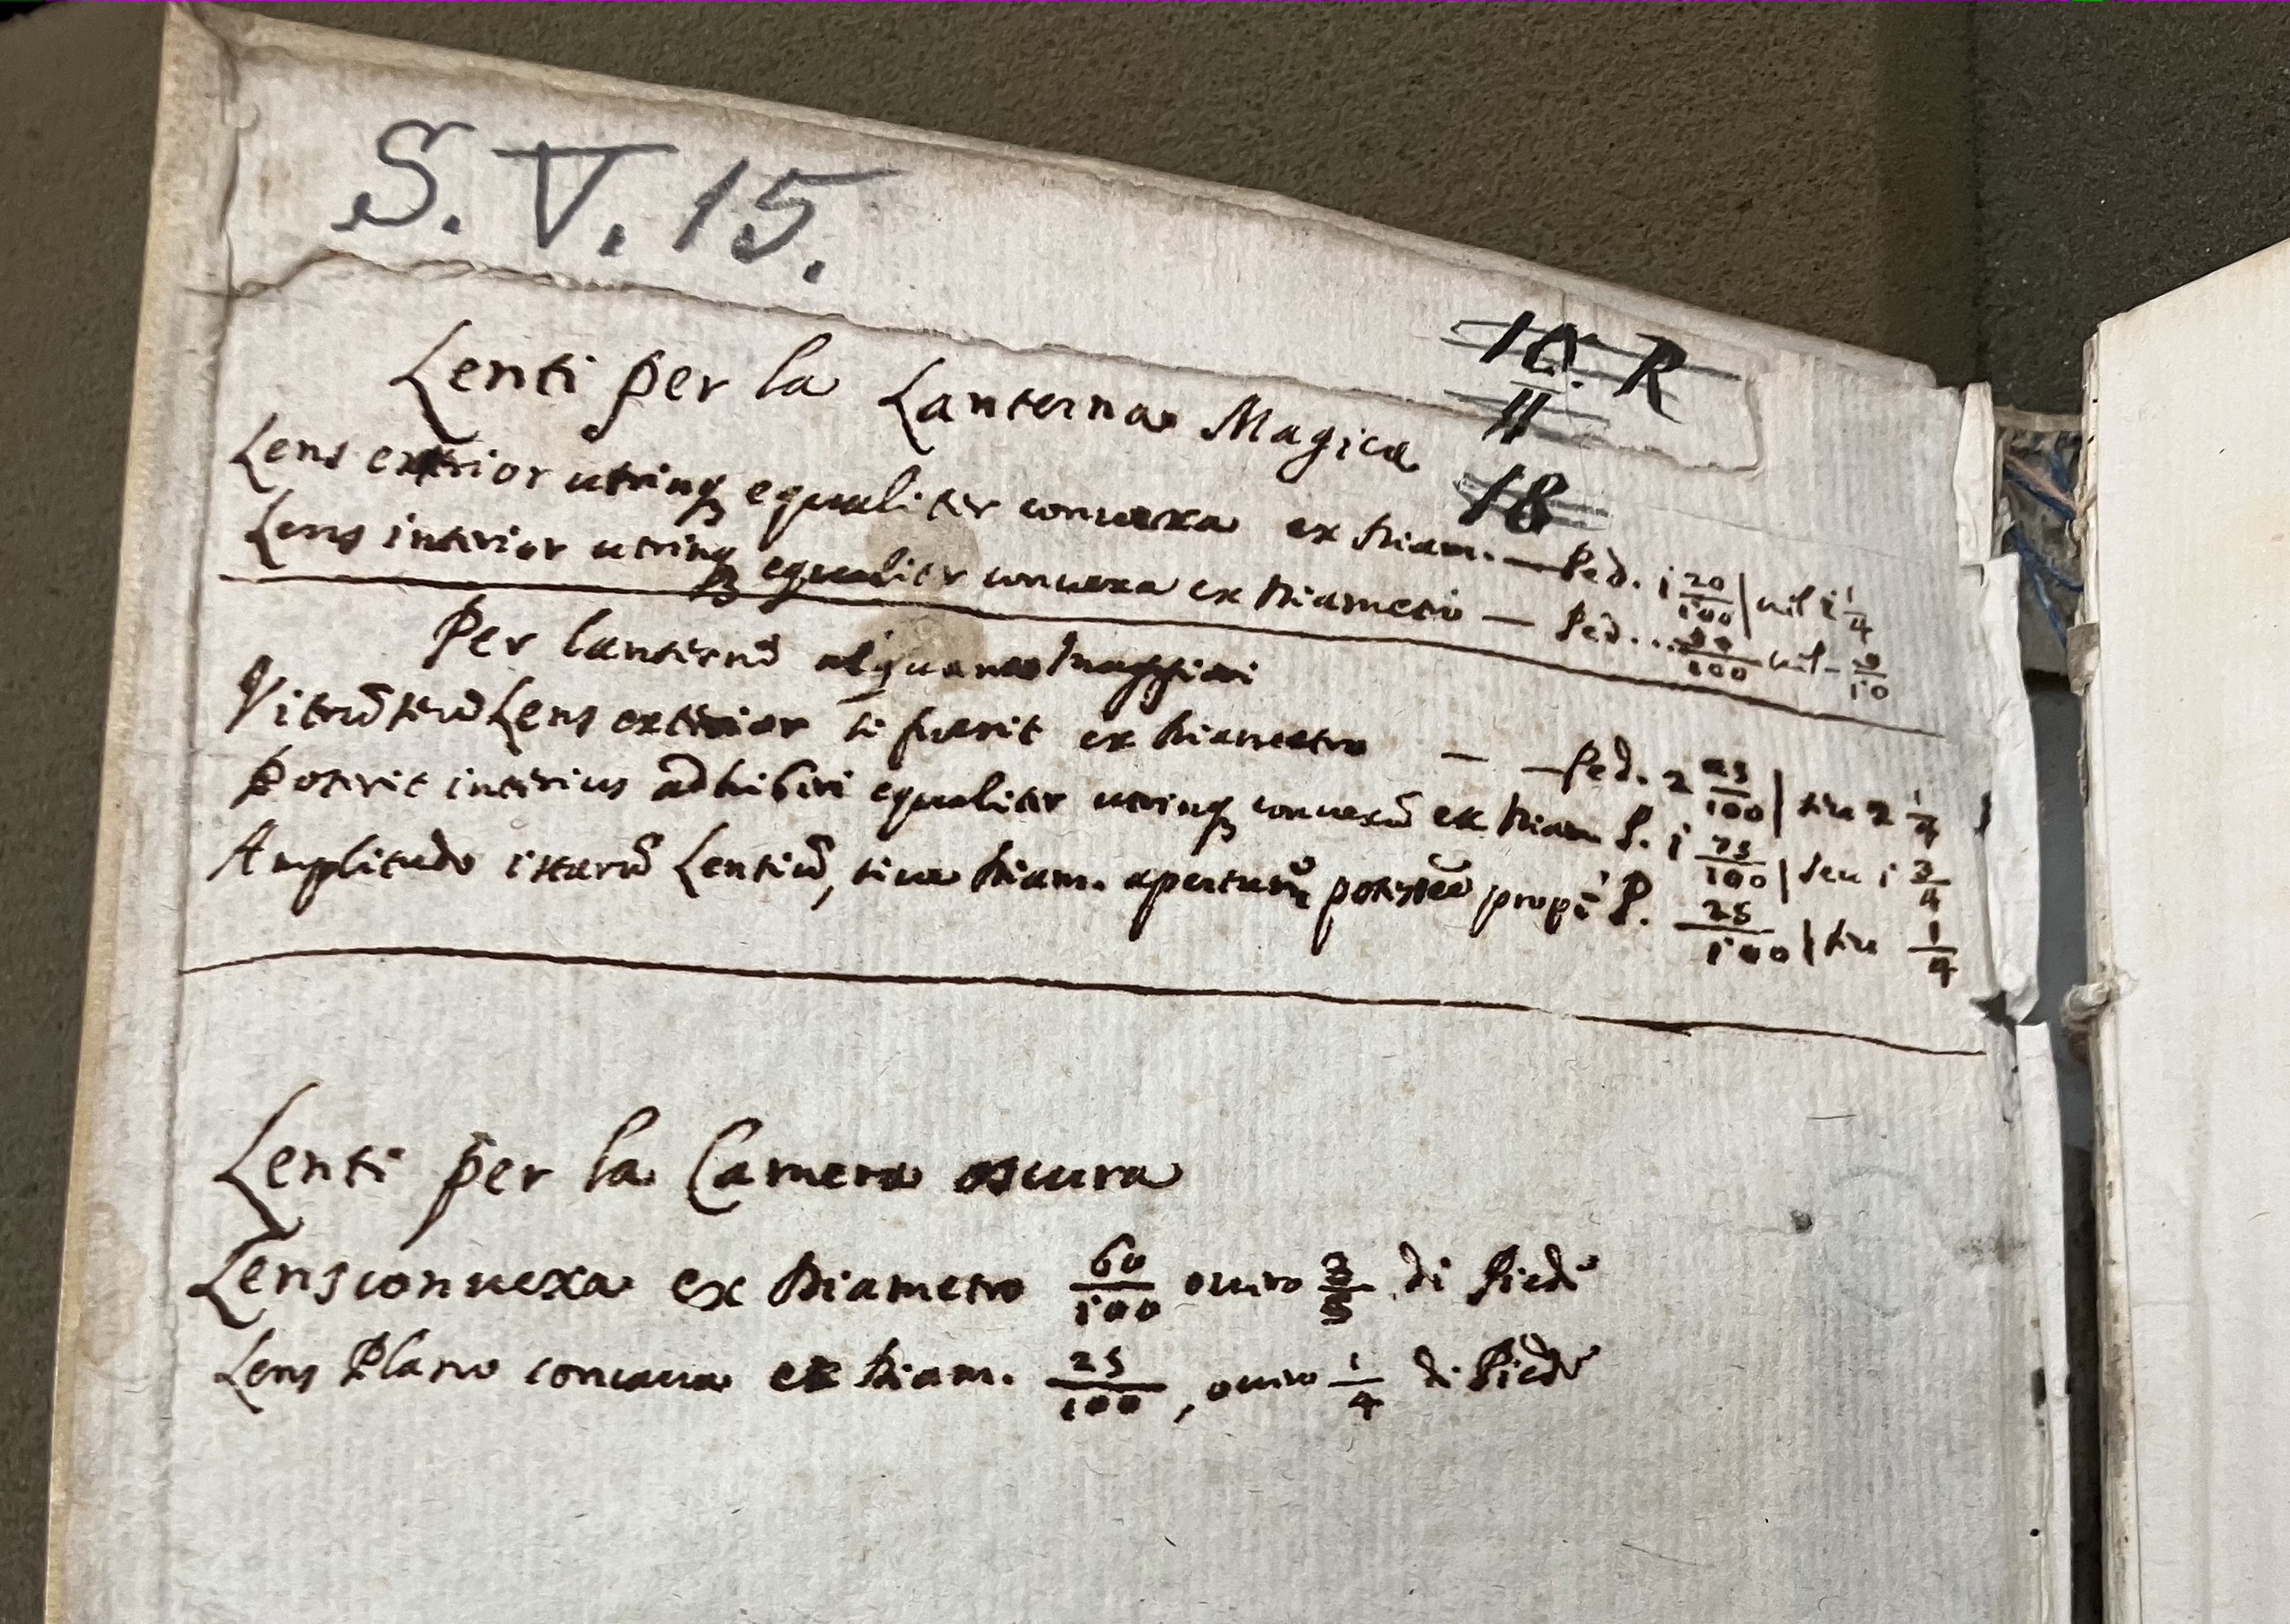 S. V. 15.
10. R
II
18
Lenti per la Lanterna Magica
Lens exterior utrinq; equaliter convexa ex Diam. — Ped. i 20/100 | vel i 1/4
Lens interior utrinq; equaliter convexa ex Diametro — Ped... /100 vel - 9/10
Per lanternū alquanto maggiori
Vitrū seu Lens exterior si fuerit ex Diametro — — Ped. 2 25/100 | seu 2 1/4
Poterit interius adhiberi equaliter utrinq; convexū ex Diam P. i 75/100 | seu i 3/4
Amplitudo istarū Lentiū, sive Diam. apertur propè P. 25/100 | seu 1/4
Lenti per la Camera oscura
Lens convexa ex Diametro 60/100 ouero 3/5 di Piede
Lens Plano concava ex Diam. 25/100, ouero 1/4 di Piede